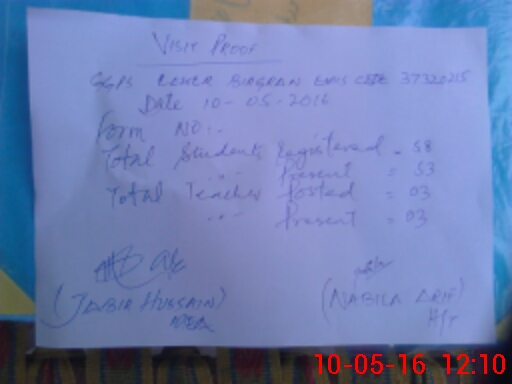 VISIT PROOF
GGPS LEHER BIRGRAN EMIS CODE 37320215
Date 10-05-2016
Form NO:-
Total Students Registered - 58
" " Present = 53
Total Teacher Posted = 03
" " Present = 03
(JABIR HUSSAIN) (NABILA ARIF)
MEA H/T
10-05-16 12:10